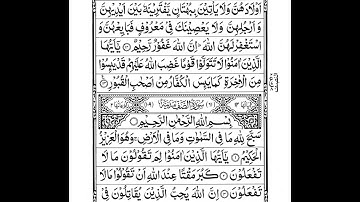 اَوْلَادَهُنَّ وَلَا يَاْتِيْنَ بِبُهْتَانٍ يَّفْتَرِيْنَهٗ بَيْنَ اَيْدِيْهِنَّ
وَاَرْجُلِهِنَّ وَلَا يَعْصِيْنَكَ فِيْ مَعْرُوْفٍ فَبَايِعْهُنَّ وَ
اسْتَغْفِرْ لَهُنَّ اللهَ ؕ اِنَّ اللهَ غَفُوْرٌ رَّحِيْمٌ ۝ يٰۤاَيُّهَا
الَّذِيْنَ اٰمَنُوْا لَا تَتَوَلَّوْا قَوْمًا غَضِبَ اللهُ عَلَيْهِمْ قَدْ يَئِسُوْا
مِنَ الْاٰخِرَةِ كَمَا يَئِسَ الْكُفَّارُ مِنْ اَصْحٰبِ الْقُبُوْرِ ۝
سُوْرَةُ الصَّفِّ
بِسْمِ اللهِ الرَّحْمٰنِ الرَّحِيْمِ
سَبَّحَ لِلّٰهِ مَا فِي السَّمٰوٰتِ وَمَا فِي الْاَرْضِ ۚ وَهُوَ الْعَزِيْزُ
الْحَكِيْمُ ۝ يٰۤاَيُّهَا الَّذِيْنَ اٰمَنُوْا لِمَ تَقُوْلُوْنَ مَا لَا
تَفْعَلُوْنَ ۝ كَبُرَ مَقْتًا عِنْدَ اللهِ اَنْ تَقُوْلُوْا مَا لَا
تَفْعَلُوْنَ ۝ اِنَّ اللهَ يُحِبُّ الَّذِيْنَ يُقَاتِلُوْنَ فِيْ